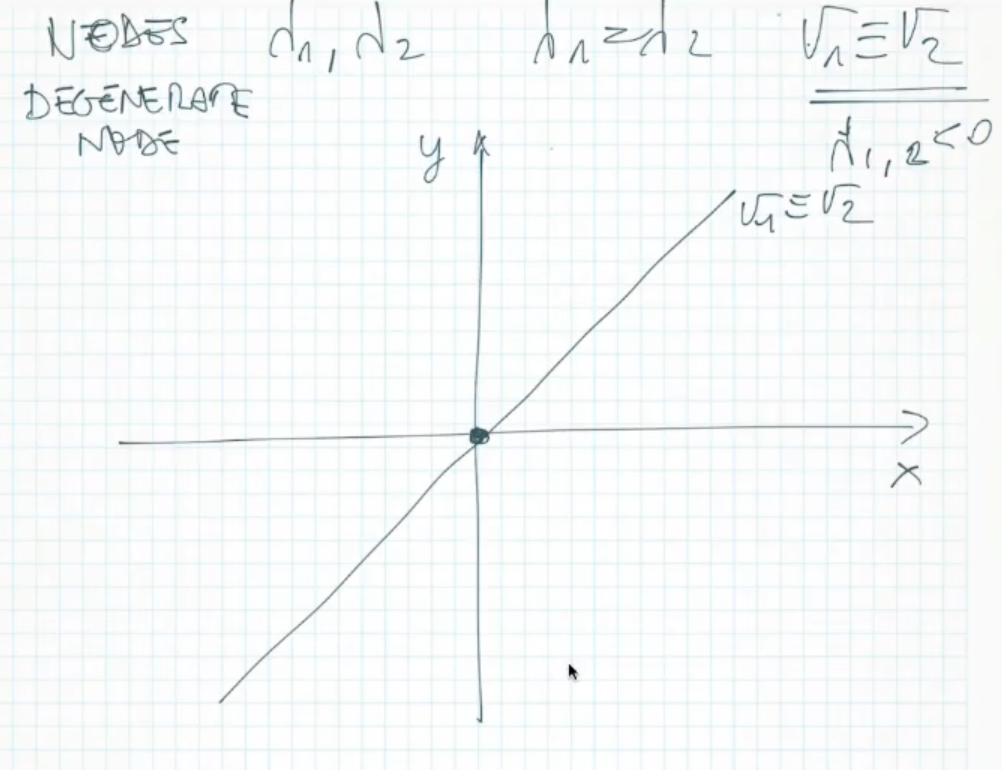 NODES λ1, λ2 λ1=λ2 V1≡V2
DEGENERATE
NODE
λ1,2<0
y
V1≡V2
x